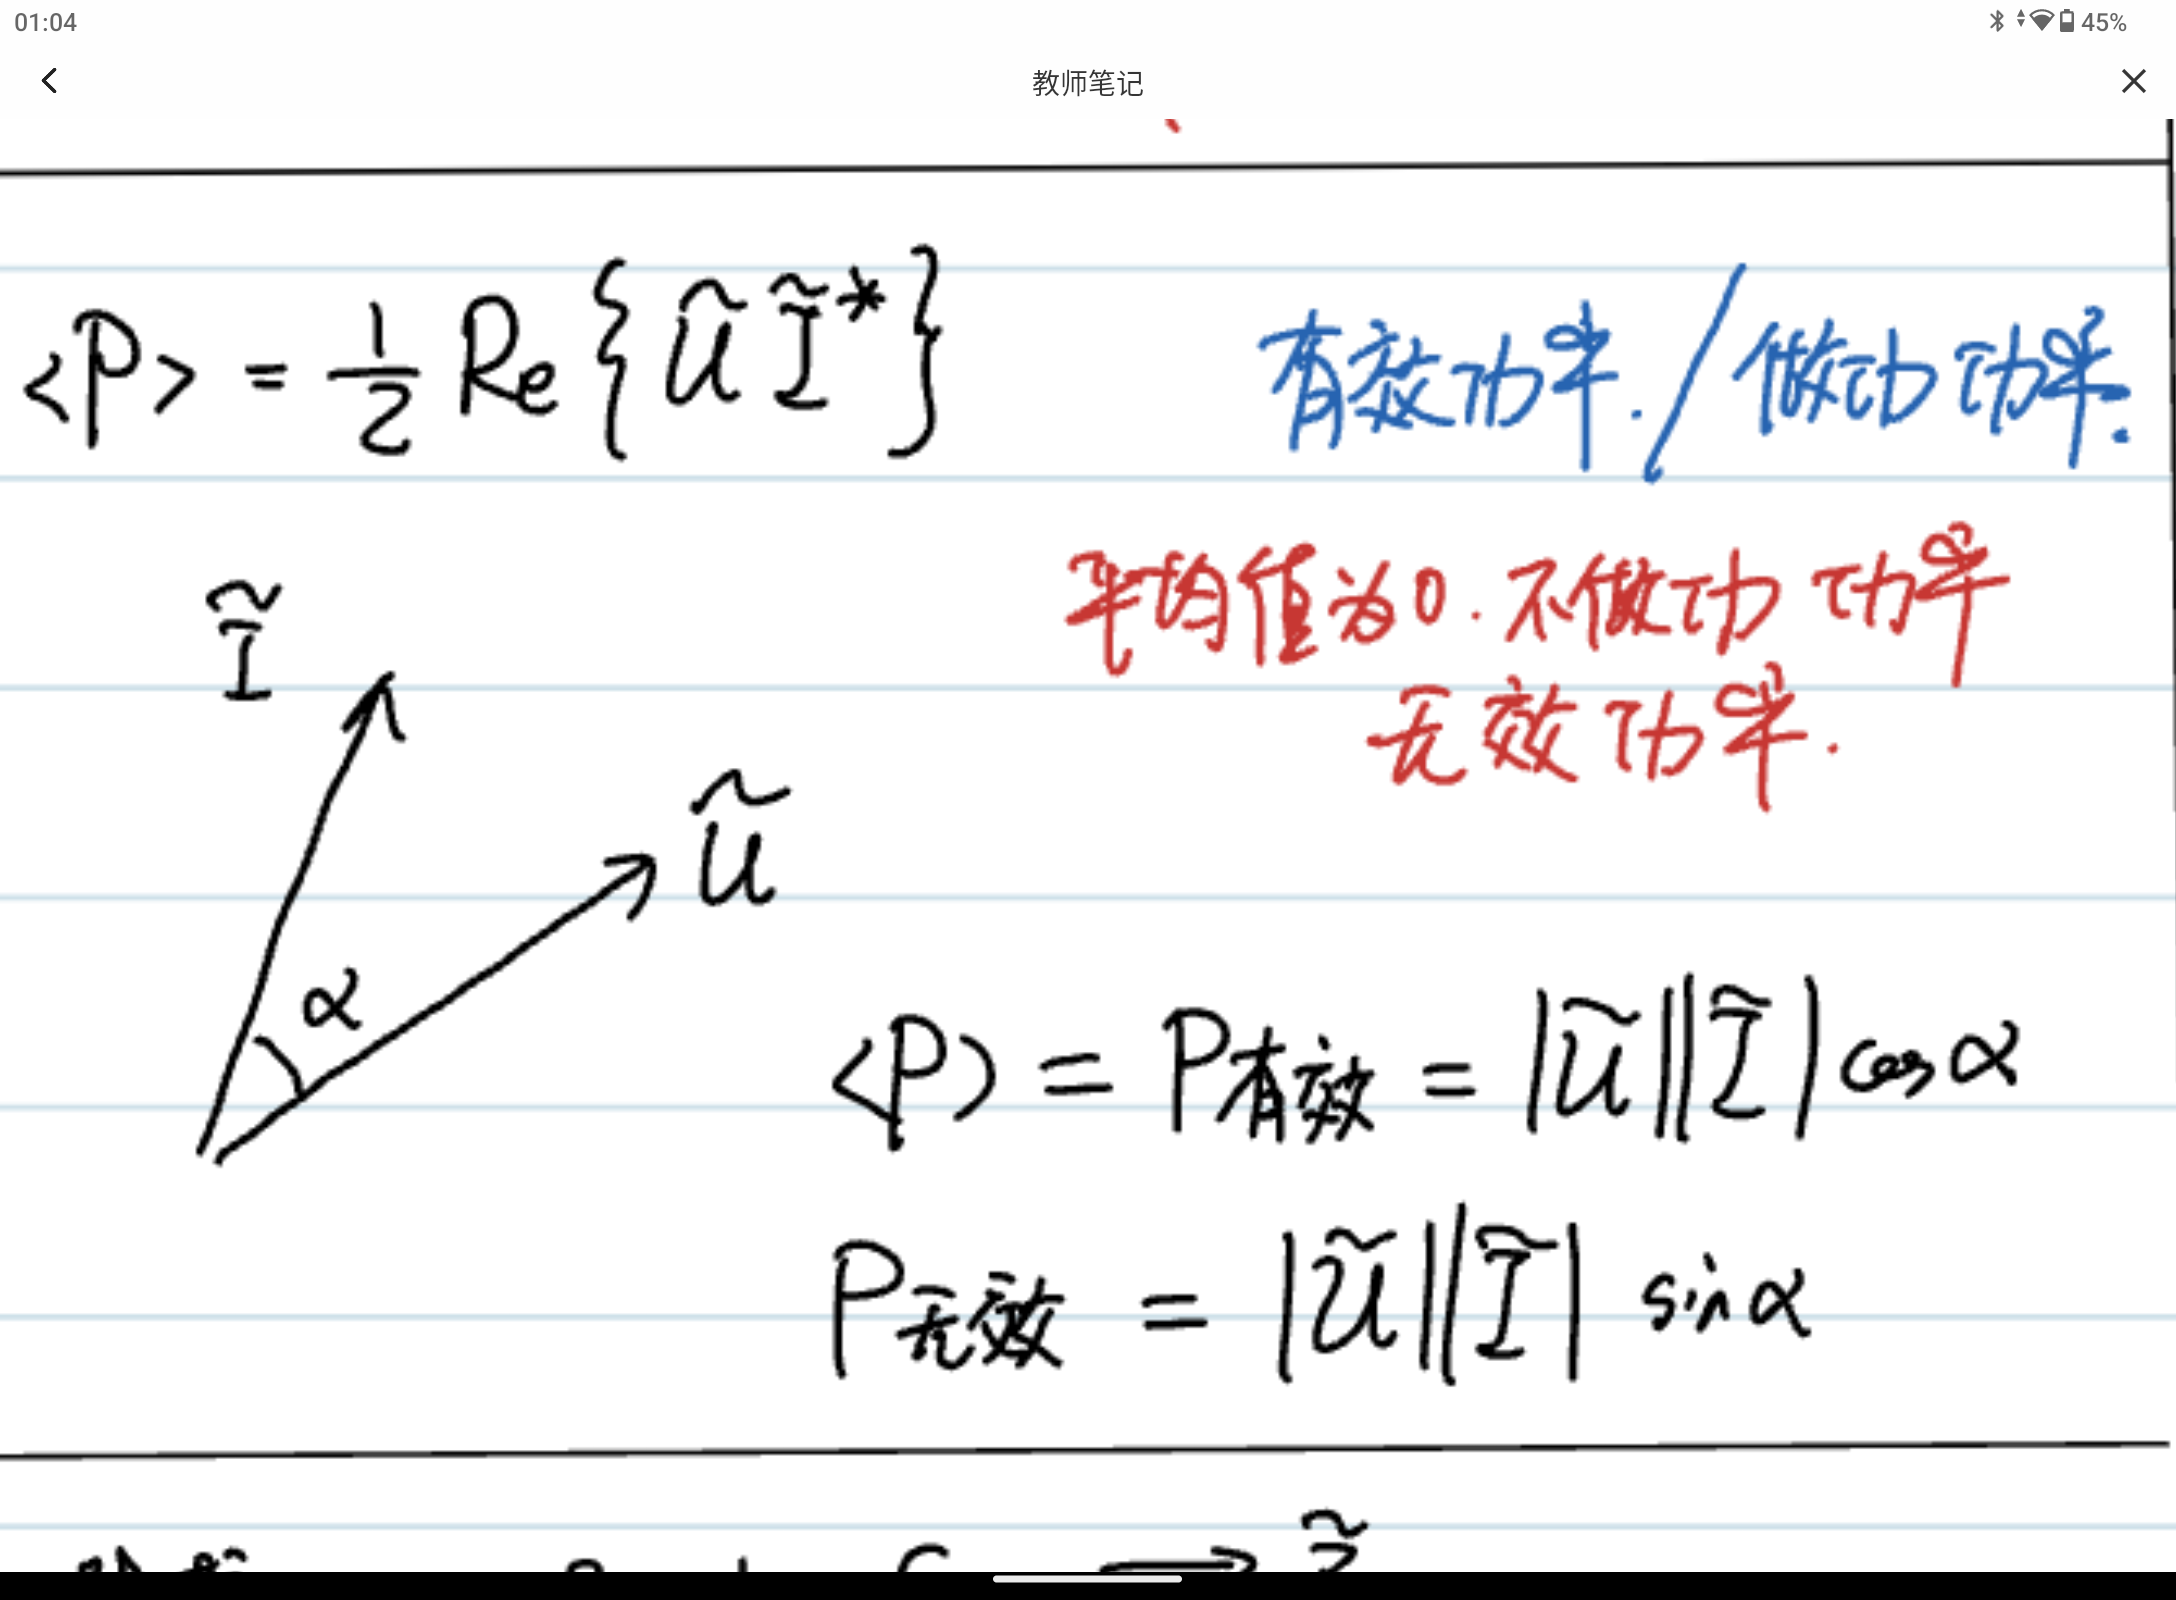 01:04
45%
教师笔记
<P> = 1/2 Re{ŨĨ*}
有效功率./做功功率.
平均值为0.不做功功率
无效功率.
Ĩ
Ũ
α
<P> = P有效 = |Ũ||Ĩ|cosα
P无效 = |Ũ||Ĩ| sinα